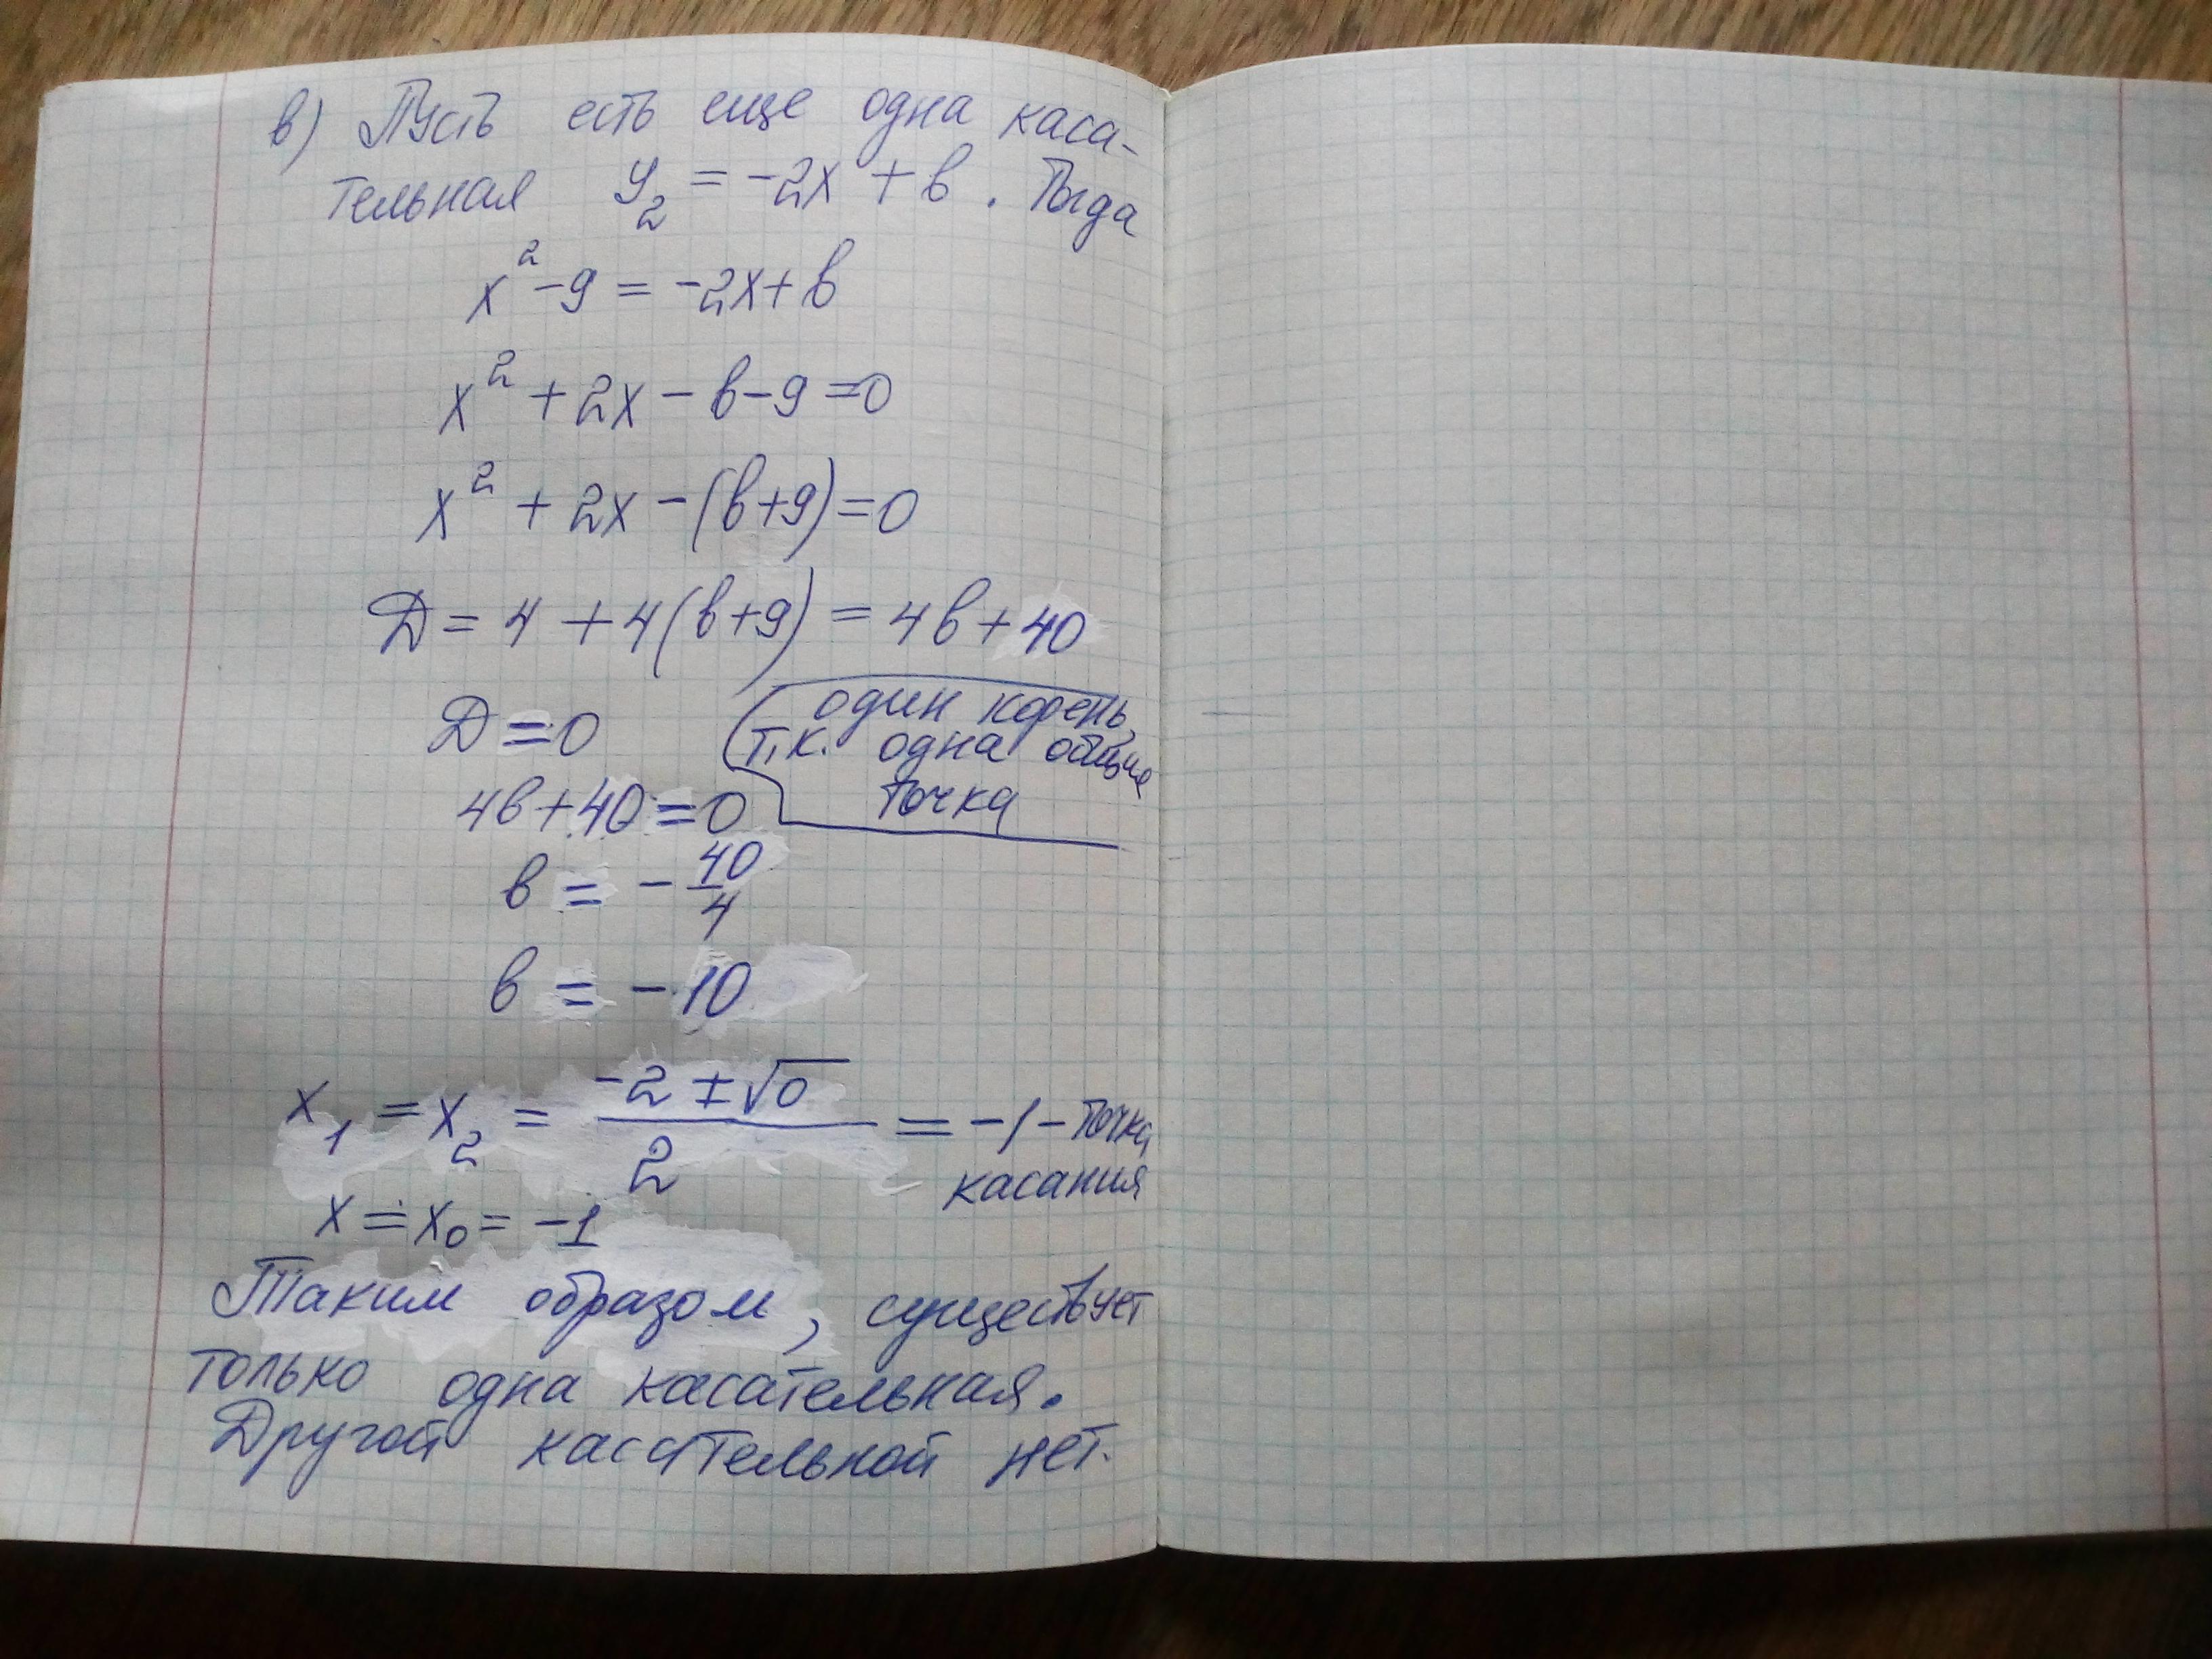 в) Пусть есть еще одна каса-
тельная y₂ = -2x + в. Тогда
x² - 9 = -2x + в
x² + 2x - в - 9 = 0
x² + 2x - (в+9) = 0
D = 4 + 4(в+9) = 4в + 40
D = 0
один корень,
т.к. одна общая
точка
4в + 40 = 0
в = - 40/4
в = -10
x₁ = x₂ = (-2 ± √0)/2 = -1 - точка
касания
x = x₀ = -1
Таким образом, существует
только одна касательная.
Другой касательной нет.